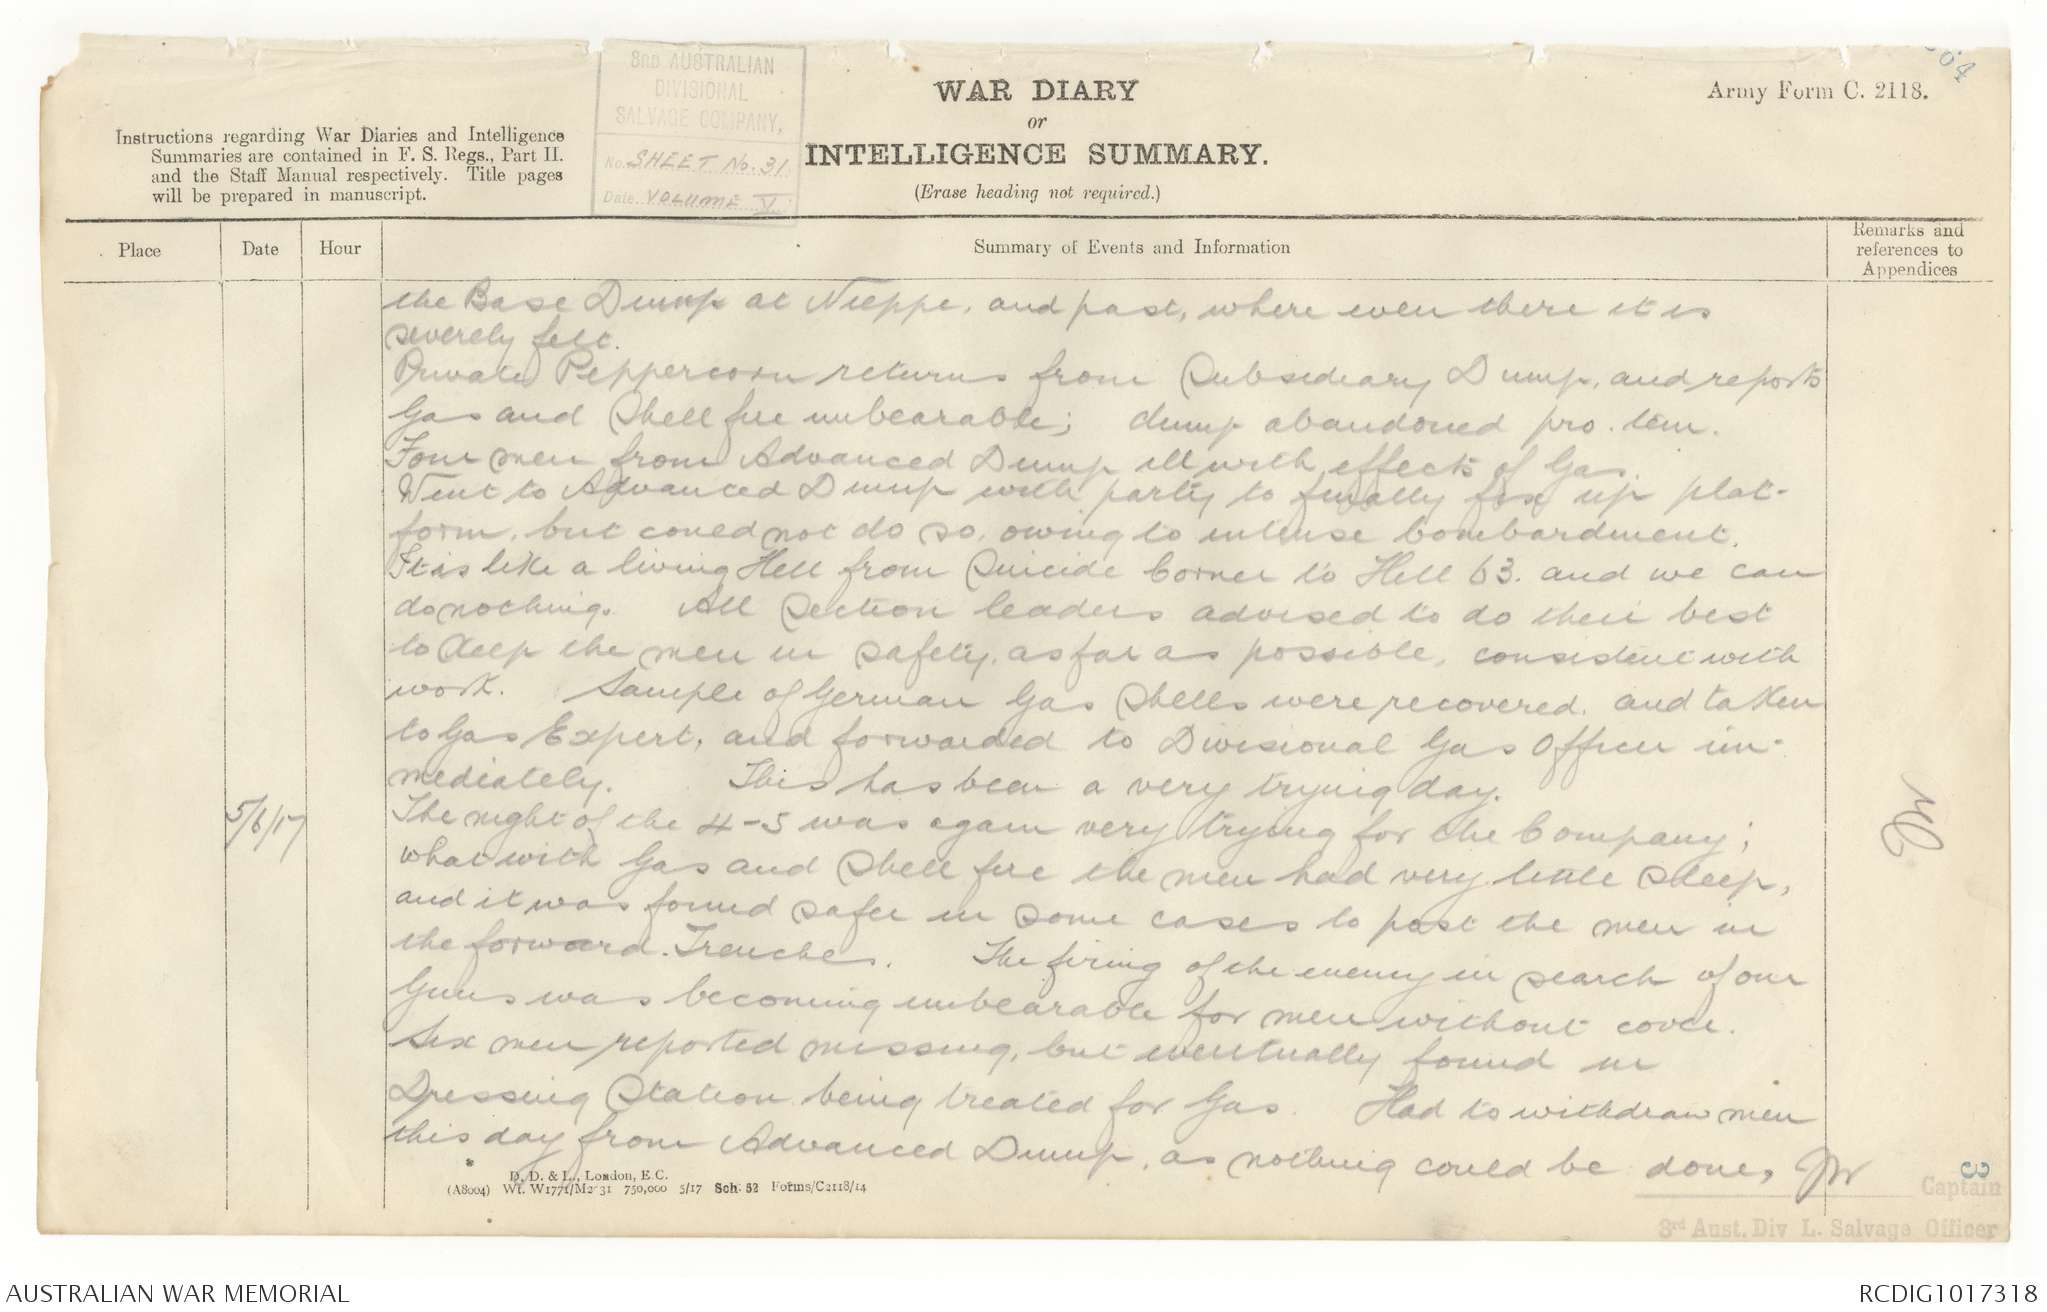 3RD AUSTRALIAN
DIVISIONAL
SALVAGE COMPANY,
No. SHEET No. 31
Date VOLUME V.
WAR DIARY
or
INTELLIGENCE SUMMARY.
(Erase heading not required.)
Army Form C. 2118.
Instructions regarding War Diaries and Intelligence
Summaries are contained in F. S. Regs., Part II.
and the Staff Manual respectively. Title pages
will be prepared in manuscript.
Place
Date
Hour
Summary of Events and Information
Remarks and
references to
Appendices
the Base Dump at Nieppe, and past, where even there it is
severely felt.
Private Peppercorn returns from Subsidiary Dump, and reports
Gas and Shell fire unbearable; dump abandoned pro. tem.
Four men from Advanced Dump ill with effects of Gas.
Went to Advanced Dump with party to finally fix up plat-
form, but could not do so, owing to intense bombardment.
It is like a living Hell from Suicide Corner to Hell 63. and we can
do nothing. All Section leaders advised to do their best
to keep the men in safety, as far as possible, consistent with
work. Sample of German Gas Shells were recovered. and taken
to Gas Expert, and forwarded to Divisional Gas Officer im-
mediately. This has been a very trying day.
5/6/17
The night of the 4-5 was again very trying for the Company;
what with Gas and Shell fire the men had very little sleep,
and it was found safer in some cases to post the men in
the forward Trenches. The firing of the enemy in search of our
Guns was becoming unbearable for men without cover.
Six men reported missing, but eventually found in
Dressing Station being treated for Gas. Had to withdraw men
this day from Advanced Dump, as nothing could be done,
D. D. & L., London, E.C.
(A8004) Wt. W1771/M2 31 750,000 5/17 Sch. 52 Forms/C2118/14
3
Captain
3rd Aust. Div L. Salvage Officer
AUSTRALIAN WAR MEMORIAL
RCDIG1017318